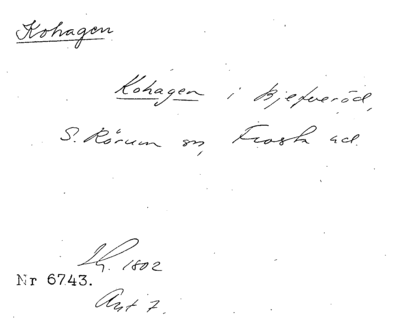 Kohagen
Kohagen i Bjefveröd,
S. Rörum sn, Frosta hd.
Sk. 1802
Nr 6743.
Akt 7.